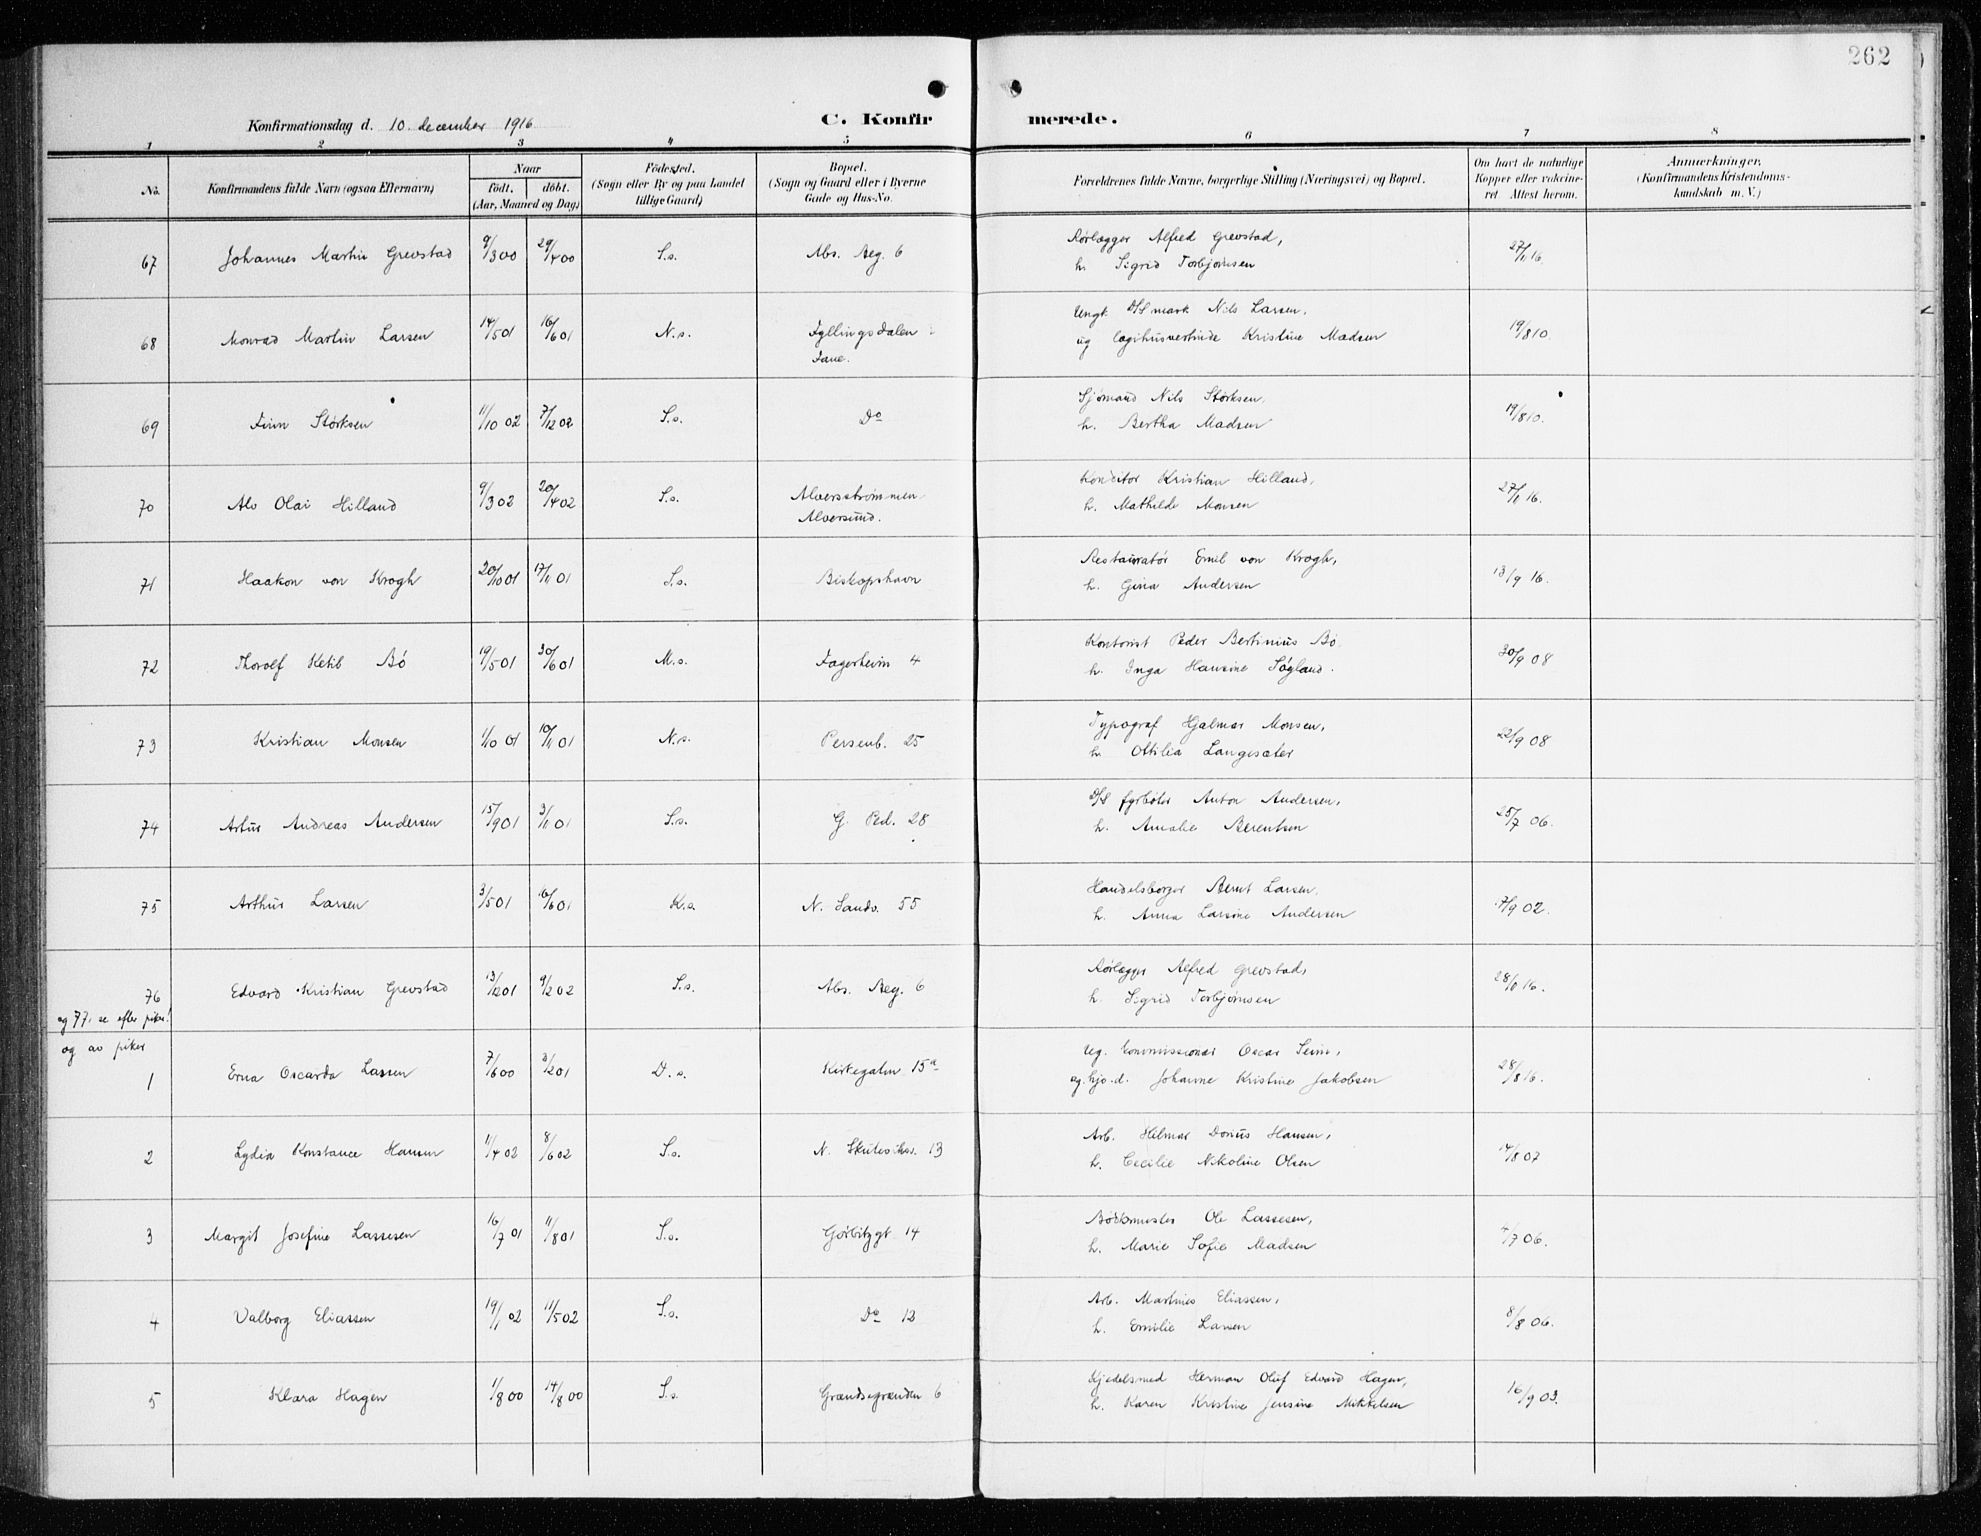 262
Konfirmationsdag d. 10. december 1916
C. Konfirmerede.
1 2 3 4 5 6 7 8
No.
Konfirmandens fulde Navn (ogsaa Efternavn)
Naar
födt. döbt.
(Aar, Maaned og Dag)
Födested.
(Sogn eller By og paa Landet
tillige Gaard)
Bopæl.
(Sogn og Gaard eller i Byerne
Gade og Hus-No.
Forældrenes fulde Navne, borgerlige Stilling (Næringsvei) og Bopæl.
Om havt de naturlige
Kopper eller vakcine-
ret. Attest herom.
Anmærkninger.
(Konfirmandens Kristendoms-
kundskab m. V.)
67 Johannes Martin Grevstad 9/3 00 29/4 00 S.s. Abs. Aeg. 6 Rørlægger Alfred Grevstad, 27/11 16.
h. Sigrid Torbjørnsen
68 Monrad Martin Larsen 14/5 01 16/6 01 N.s. Fyllingsdalen Ungk. D/S mask. Nils Larsen, 19/8 10.
Fane. og Kristine Madsen
69 Finn Størksen 11/10 02 7/12 02 S.s. Do Sjömand Nils Størksen, 19/8 10.
h. Bertha Madsen
70 Alv Olai Hilland 9/3 02 20/4 02 S.s. Alversstrømmen Konditor Kristian Hilland, 27/11 16.
Alversund. h. Mathilde Monsen
71 Haakon von Krogh 20/10 01 17/11 01 S.s. Biskopshavn Restauratør Emil von Krogh, 13/9 16.
h. Gina Andersen
72 Thorolf Ketil Bö 19/5 01 30/6 01 M.s. Fagerheim 4 Kontorist Peder Bertinius Bö 30/9 08
h. Inga Hansine Søgland.
73 Kristian Monsen 1/10 01 10/11 01 N.s. Persenb. 25 Typograf Hjalmar Monsen, 22/9 08
h. Ottilia Langesæter
74 Artur Andreas Andersen 15/9 01 3/11 01 S.s. G. Ped. 28 D/S fyrbøter Anton Andersen, 25/7 06.
h. Amalie Berentsen
75 Arthur Larsen 3/5 01 16/6 01 K.s. N. Sandv. 55 Handelsborger Bernt Larsen, 7/9 02.
h. Anna Larsine Andersen
76 Edvard Kristian Grevstad 13/12 01 9/2 02 S.s. Abs. Aeg. 6 Rørlægger Alfred Grevstad, 28/11 16.
h. Sigrid Torbjørnsen
og 77. se efter piker!
og av piker
1 Erna Oscarda Lassen 7/6 00 3/2 01 D.s. Kirkegaten 15a Ug. kommissionær Oscar Seim, 28/8 16.
og hjv. d. Johanne Kristine Jakobsen
2 Lydia Konstance Hansen 11/4 02 8/6 02 S.s. N. Skuteviksv. 13 Arb. Hilmar Dorius Hansen, 14/8 07
h. Cecilie Nikoline Olsen
3 Margit Josefine Lassesen 16/7 01 11/8 01 S.s. Görbitzgt 14 Bödkmester Ole Lassesen, 4/7 06.
h. Marie Sofie Madsen
4 Valborg Eliassen 19/1 02 11/5 02 S.s. Do 12 Arb. Martines Eliassen, 8/8 06.
h. Emilie Larsen
5 Klara Hagen 1/8 00 14/8 00 S.s. Grændsegrænden 6 Kjedelsmed Herman Oluf Edvard Hagen, 16/9 03.
h. Karen Kristine Jensine Mikkelsen